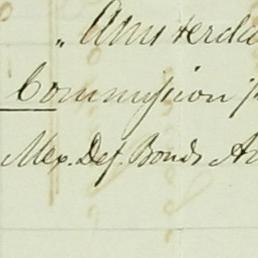 „ Amsterda
Commission
Mex. Def. Bonds A